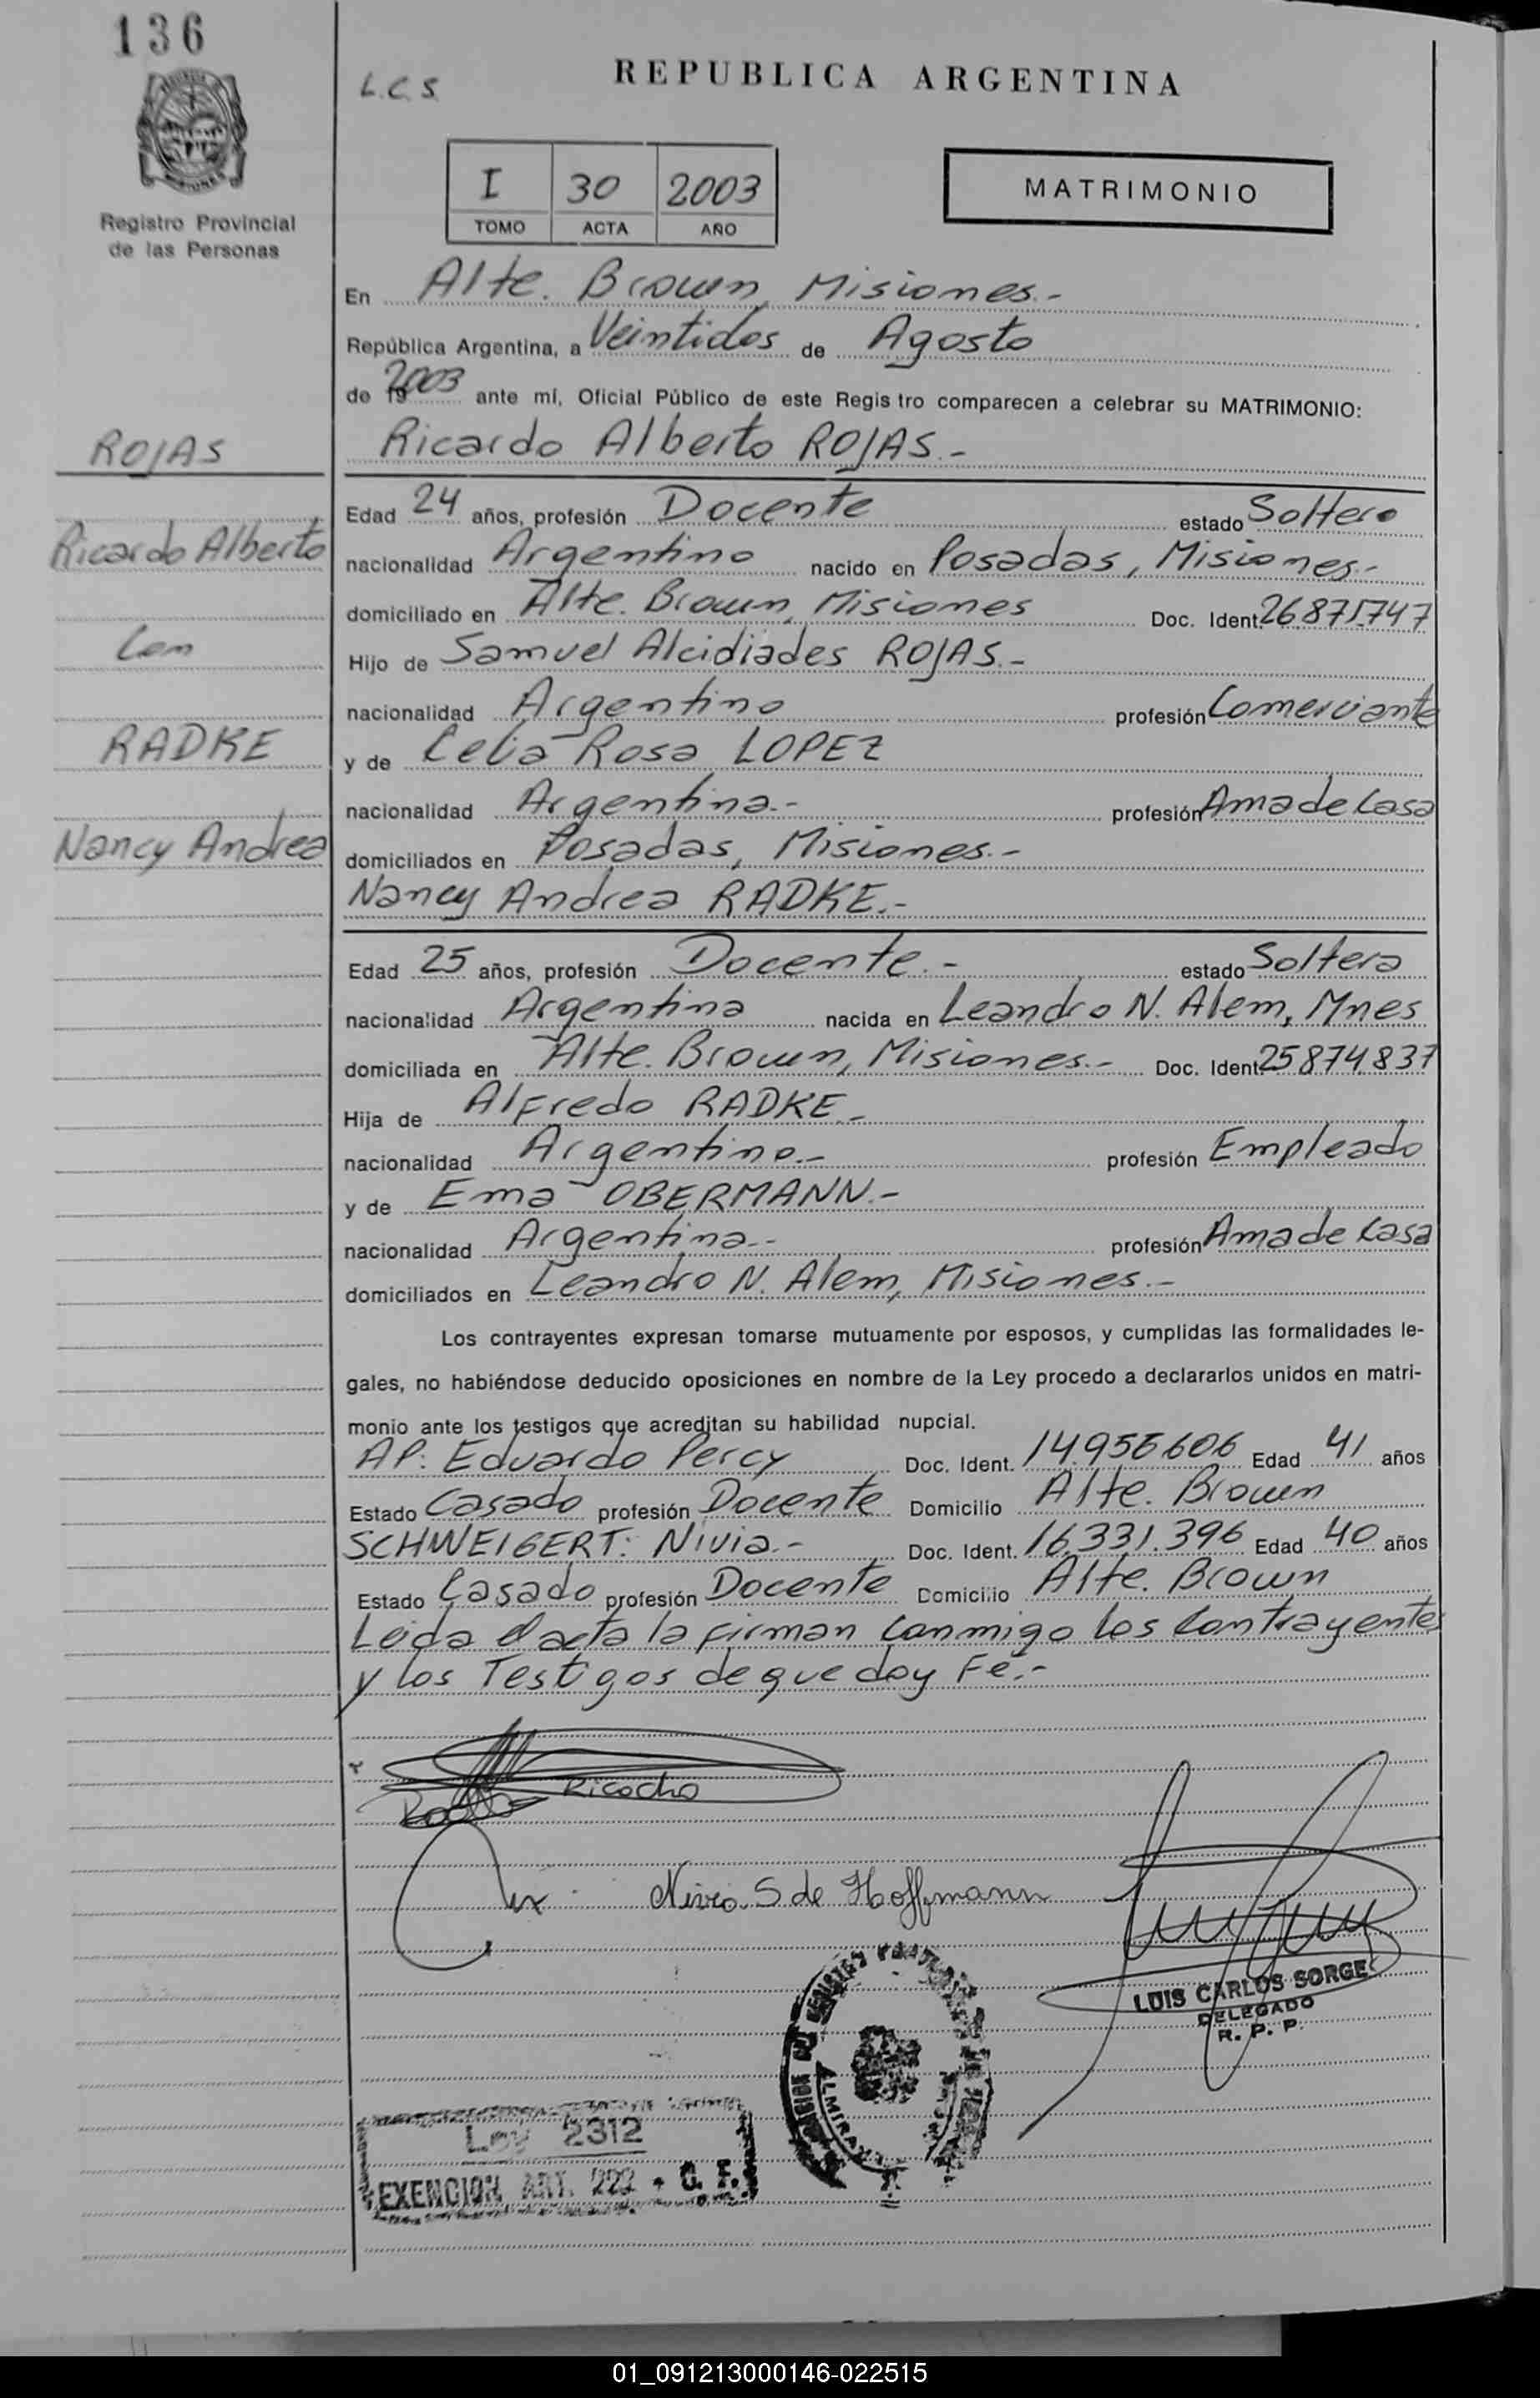 136
L.C.S.
REPUBLICA ARGENTINA
I 30 2003
TOMO ACTA AÑO
MATRIMONIO
MISIONES
Registro Provincial
de las Personas
En Alte. Brown, Misiones.-
República Argentina, a Veintidos de Agosto
de 19 2003 ante mí, Oficial Público de este Regis tro comparecen a celebrar su MATRIMONIO:
ROJAS
Ricardo Alberto ROJAS.-
Edad 24 años, profesión Docente estado Soltero
Ricardo Alberto
nacionalidad Argentino nacido en Posadas, Misiones.-
domiciliado en Alte. Brown, Misiones Doc. Ident. 26.875.747
Con
Hijo de Samuel Alcidiades ROJAS.-
nacionalidad Argentino profesión Comerciante
RADKE
y de Celia Rosa LOPEZ
nacionalidad Argentina.- profesión Ama de Casa
Nancy Andrea
domiciliados en Posadas, Misiones.-
Nancy Andrea RADKE.-
Edad 25 años, profesión Docente.- estado Soltera
nacionalidad Argentina nacida en Leandro N. Alem, Mnes
domiciliada en Alte. Brown, Misiones.- Doc. Ident. 25.874.837
Hija de Alfredo RADKE.-
nacionalidad Argentino.- profesión Empleado
y de Ema OBERMANN.-
nacionalidad Argentina.- profesión Ama de Casa
domiciliados en Leandro N. Alem, Misiones.-
Los contrayentes expresan tomarse mutuamente por esposos, y cumplidas las formalidades le-
gales, no habiéndose deducido oposiciones en nombre de la Ley procedo a declararlos unidos en matri-
monio ante los testigos que acreditan su habilidad nupcial.
AP: Eduardo Percy Doc. Ident. 14.956.606 Edad 41 años
Estado Casado profesión Docente Domicilio Alte. Brown
SCHWEIGERT: Nivia.- Doc. Ident. 16.331.396 Edad 40 años
Estado Casado profesión Docente Domicilio Alte. Brown
Leida el acta la firman conmigo los Contrayentes
y los Testigos de que doy Fe.-
Nivia S. de Hoffmann
LUIS CARLOS SORGE
DELEGADO
R. P. P.
Ley 2312
EXENCION ART. 222 - C. F.
01_091213000146-022515